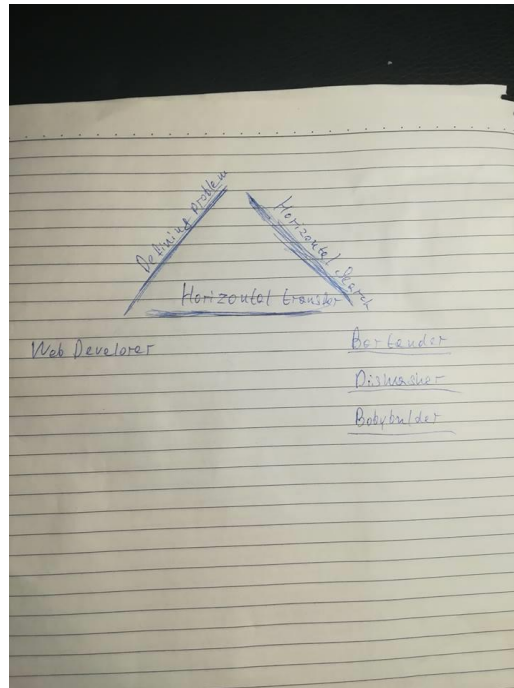 Defining problem
Horizontal Search
Horizontal transfer
Web Develorer
Bartender
Dismasher
Bobybulder